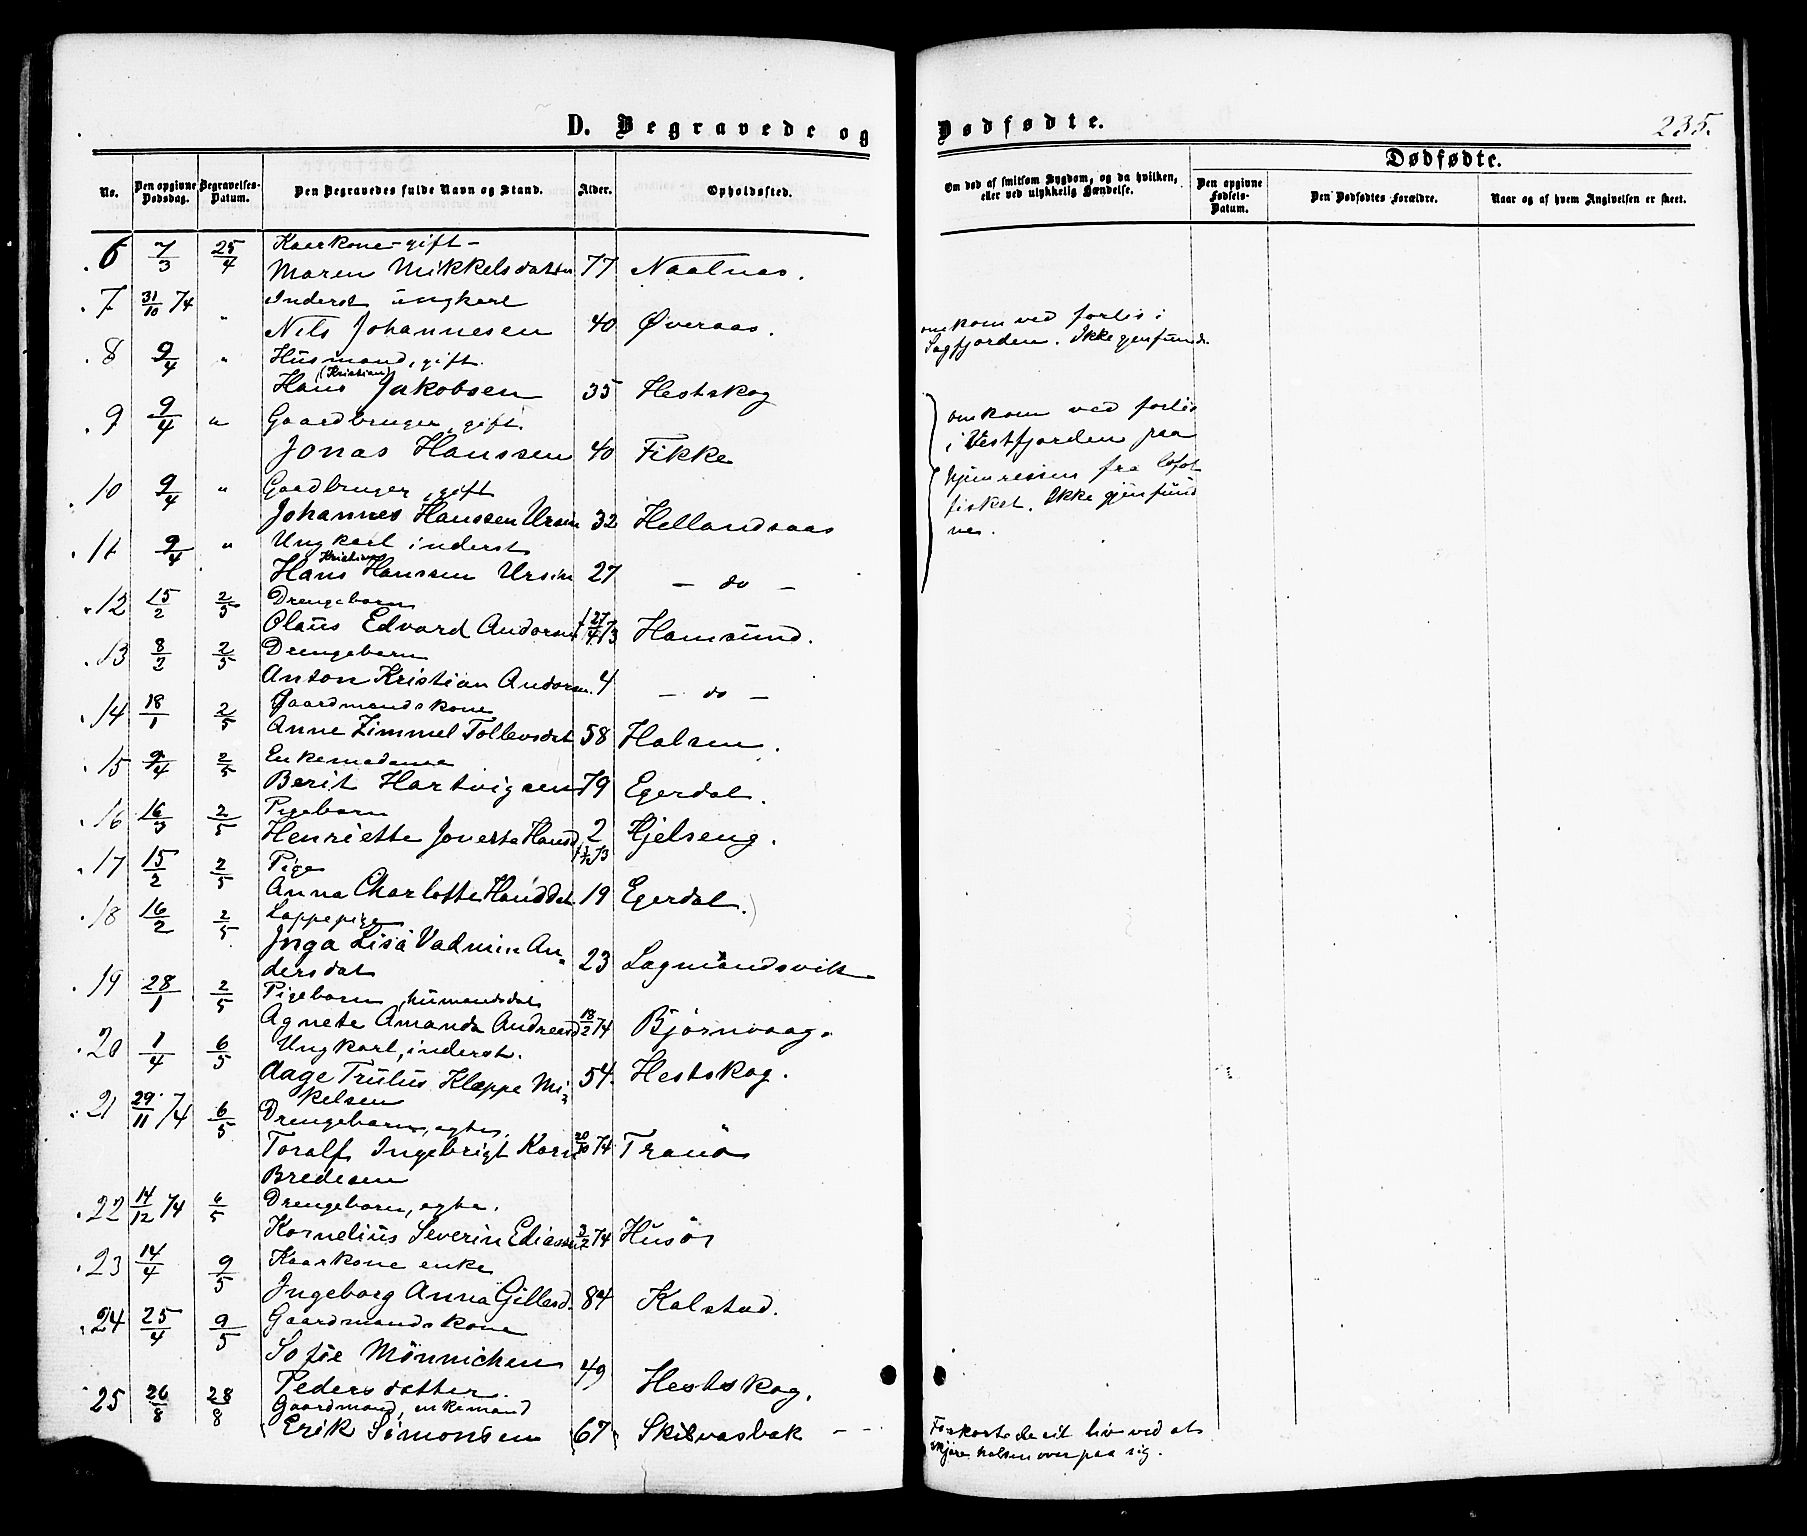 D. Begravede og Dødfødte.
235.
Dødfødte.
No.
Den opgivne Dødsdag.
Begravelses-Datum.
Den Begravedes fulde Navn og Stand.
Alder.
Opholdssted.
Om død af smitsom Sygdom, og da hvilken, eller ved ulykkelig Hændelse.
Den opgivne Fødsels-Datum.
Den Dødfødtes Forældre.
Naar og af hvem Angivelsen er skeet.
6 7/3 25/4 Kaarkone gift
Maren Mikkelsdatter 77 Naalnes.
7 31/10 74 " Inderst ungkarl
Nils Johannesen 40 Øveraas.
omkom ved forlis i
Sagfjorden. Ikke gjenfunden
8 9/4 " Husmand, gift.
Hans (Kristian) Jakobsen 35 Hestskog
9 9/4 " Gaardbruger, gift
Jonas Hanssen 40 Fikke
omkom ved forlis
i Vestfjorden paa
hjemreisen fra lofot
fisket. Ikke gjenfund
ne.
10 9/4 " Gaardbruger, gift
Johannes Hanssen Ursin 32 Hellandsaas
11 9/4 " Ungkarl inderst
Hans Kristian Hanssen Ursin 27 - do -
12 15/2 2/5 Drengebarn
Olaus Edvard Andorsen f 27/4 73 Hamsund.
13 8/2 2/5 Drengebarn
Anton Kristian Andorsen. 4 - do -
14 18/1 2/5 Gaardmandskone
Anne Zimmel Tollevsdat 58 Halsen.
15 9/4 2/5 Enkemadame
Berit Hartvigsen 79 Egerdal.
16 16/3 2/5 Pigebarn
Henriette Joverta Hansd. 2 Kjelseng.
17 15/2 2/5 Pige
Anna Charlotte Hansdat 19 Egerdal.
18 16/2 2/5 Lappepige
Inga Lisa Vadmin An-
dersdat 23 Lagmandsvik
19 28/1 2/5 Pigebarn, husmandsdat
Agnete Amanda Andreasd 18/2 74 Bjørnvaag.
20 1/4 6/5 Ungkarl, inderst.
Aage Trulus Klæppe Mi-
kelsen 54. Hestskog.
21 29/11 74 6/5 Drengebarn, egte,
Toralf Ingebrigt Korn
Bredesen 20/10 74 Tranö
22 14/12 74 6/5 Drengebarn, egte.
Kornelius Severin Eliassen 3/2 74 Husör
23 14/4 9/5 Kaarkone enke
Ingeborg Anna Gillesd. 84 Kalstad.
24 25/4 9/5 Gaardmandskone
Sofie Mönnichen
Pedersdatter. 49 Hestskog.
25 26/8 28/8 Gaardmand, enkemand
Erik Simonsen 67 Skilvasbak
Forkortede sit liv ved at
skjære halsen over paa sig.